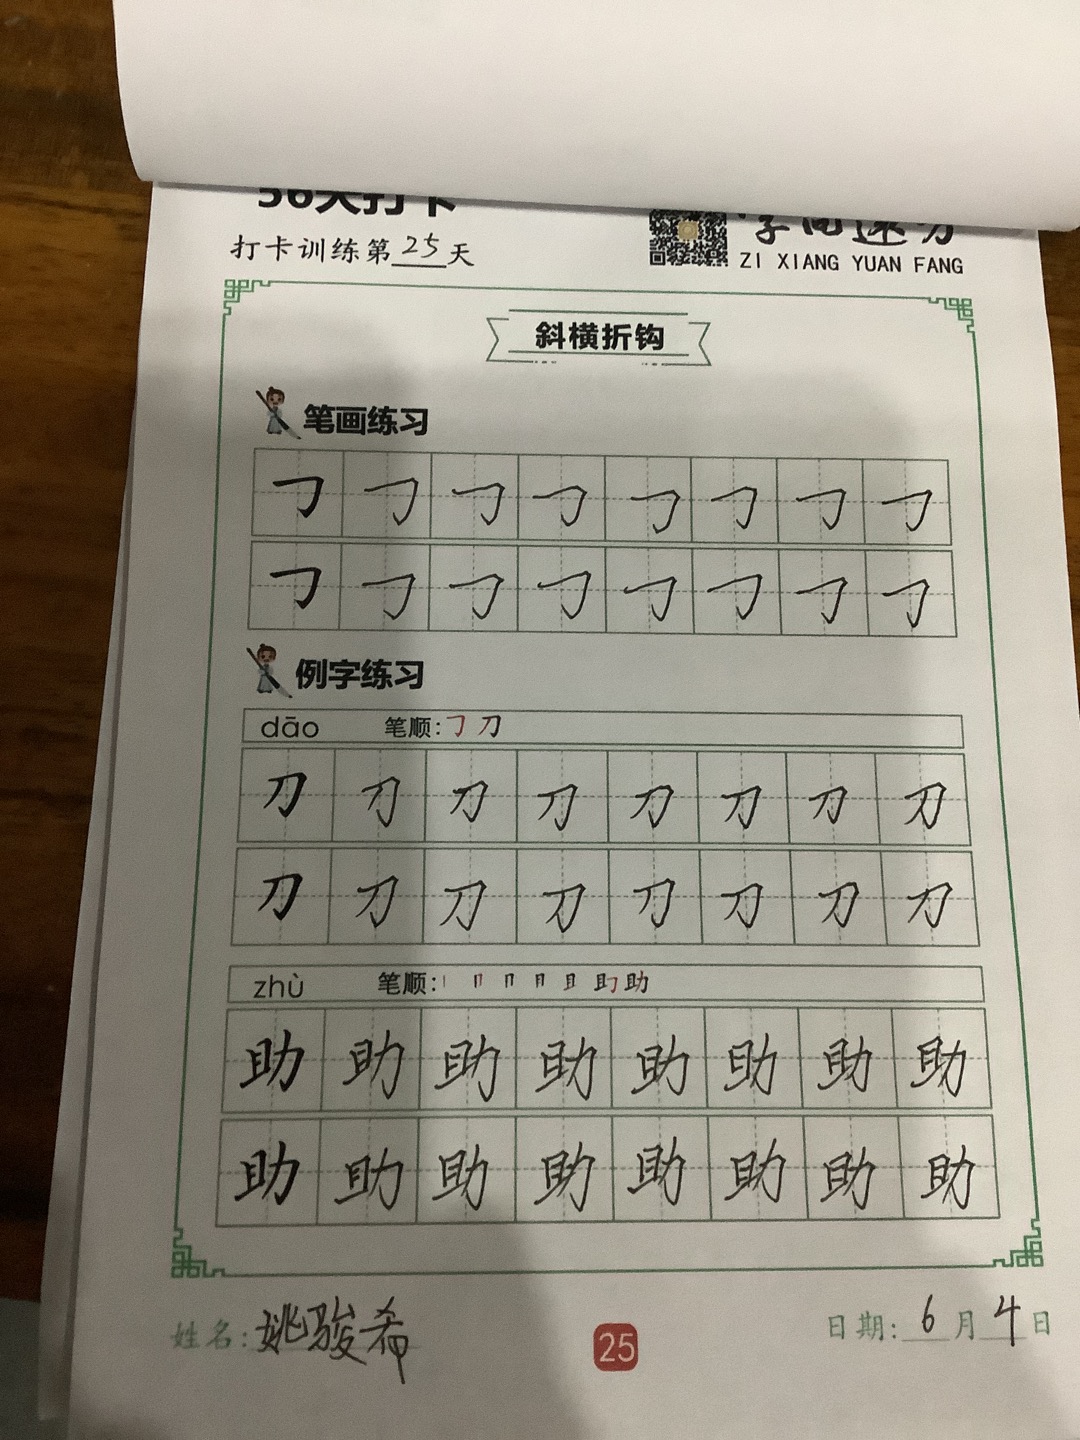 56天打卡
打卡训练第25天
字向远方
ZI XIANG YUAN FANG
斜横折钩
笔画练习
㇆ ㇆ ㇆ ㇆ ㇆ ㇆ ㇆ ㇆
㇆ ㇆ ㇆ ㇆ ㇆ ㇆ ㇆ ㇆
例字练习
dāo 笔顺:㇆刀
刀 刀 刀 刀 刀 刀 刀 刀
刀 刀 刀 刀 刀 刀 刀 刀
zhù 笔顺:丨 冂 冂 月 且 助 助
助 助 助 助 助 助 助 助
助 助 助 助 助 助 助 助
姓名:姚骏希
25
日期:6月4日